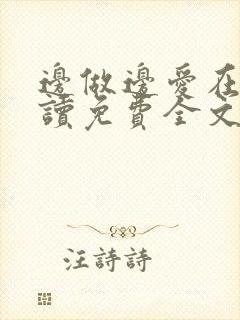 邊做邊愛在
讀免費全文
汪詩詩